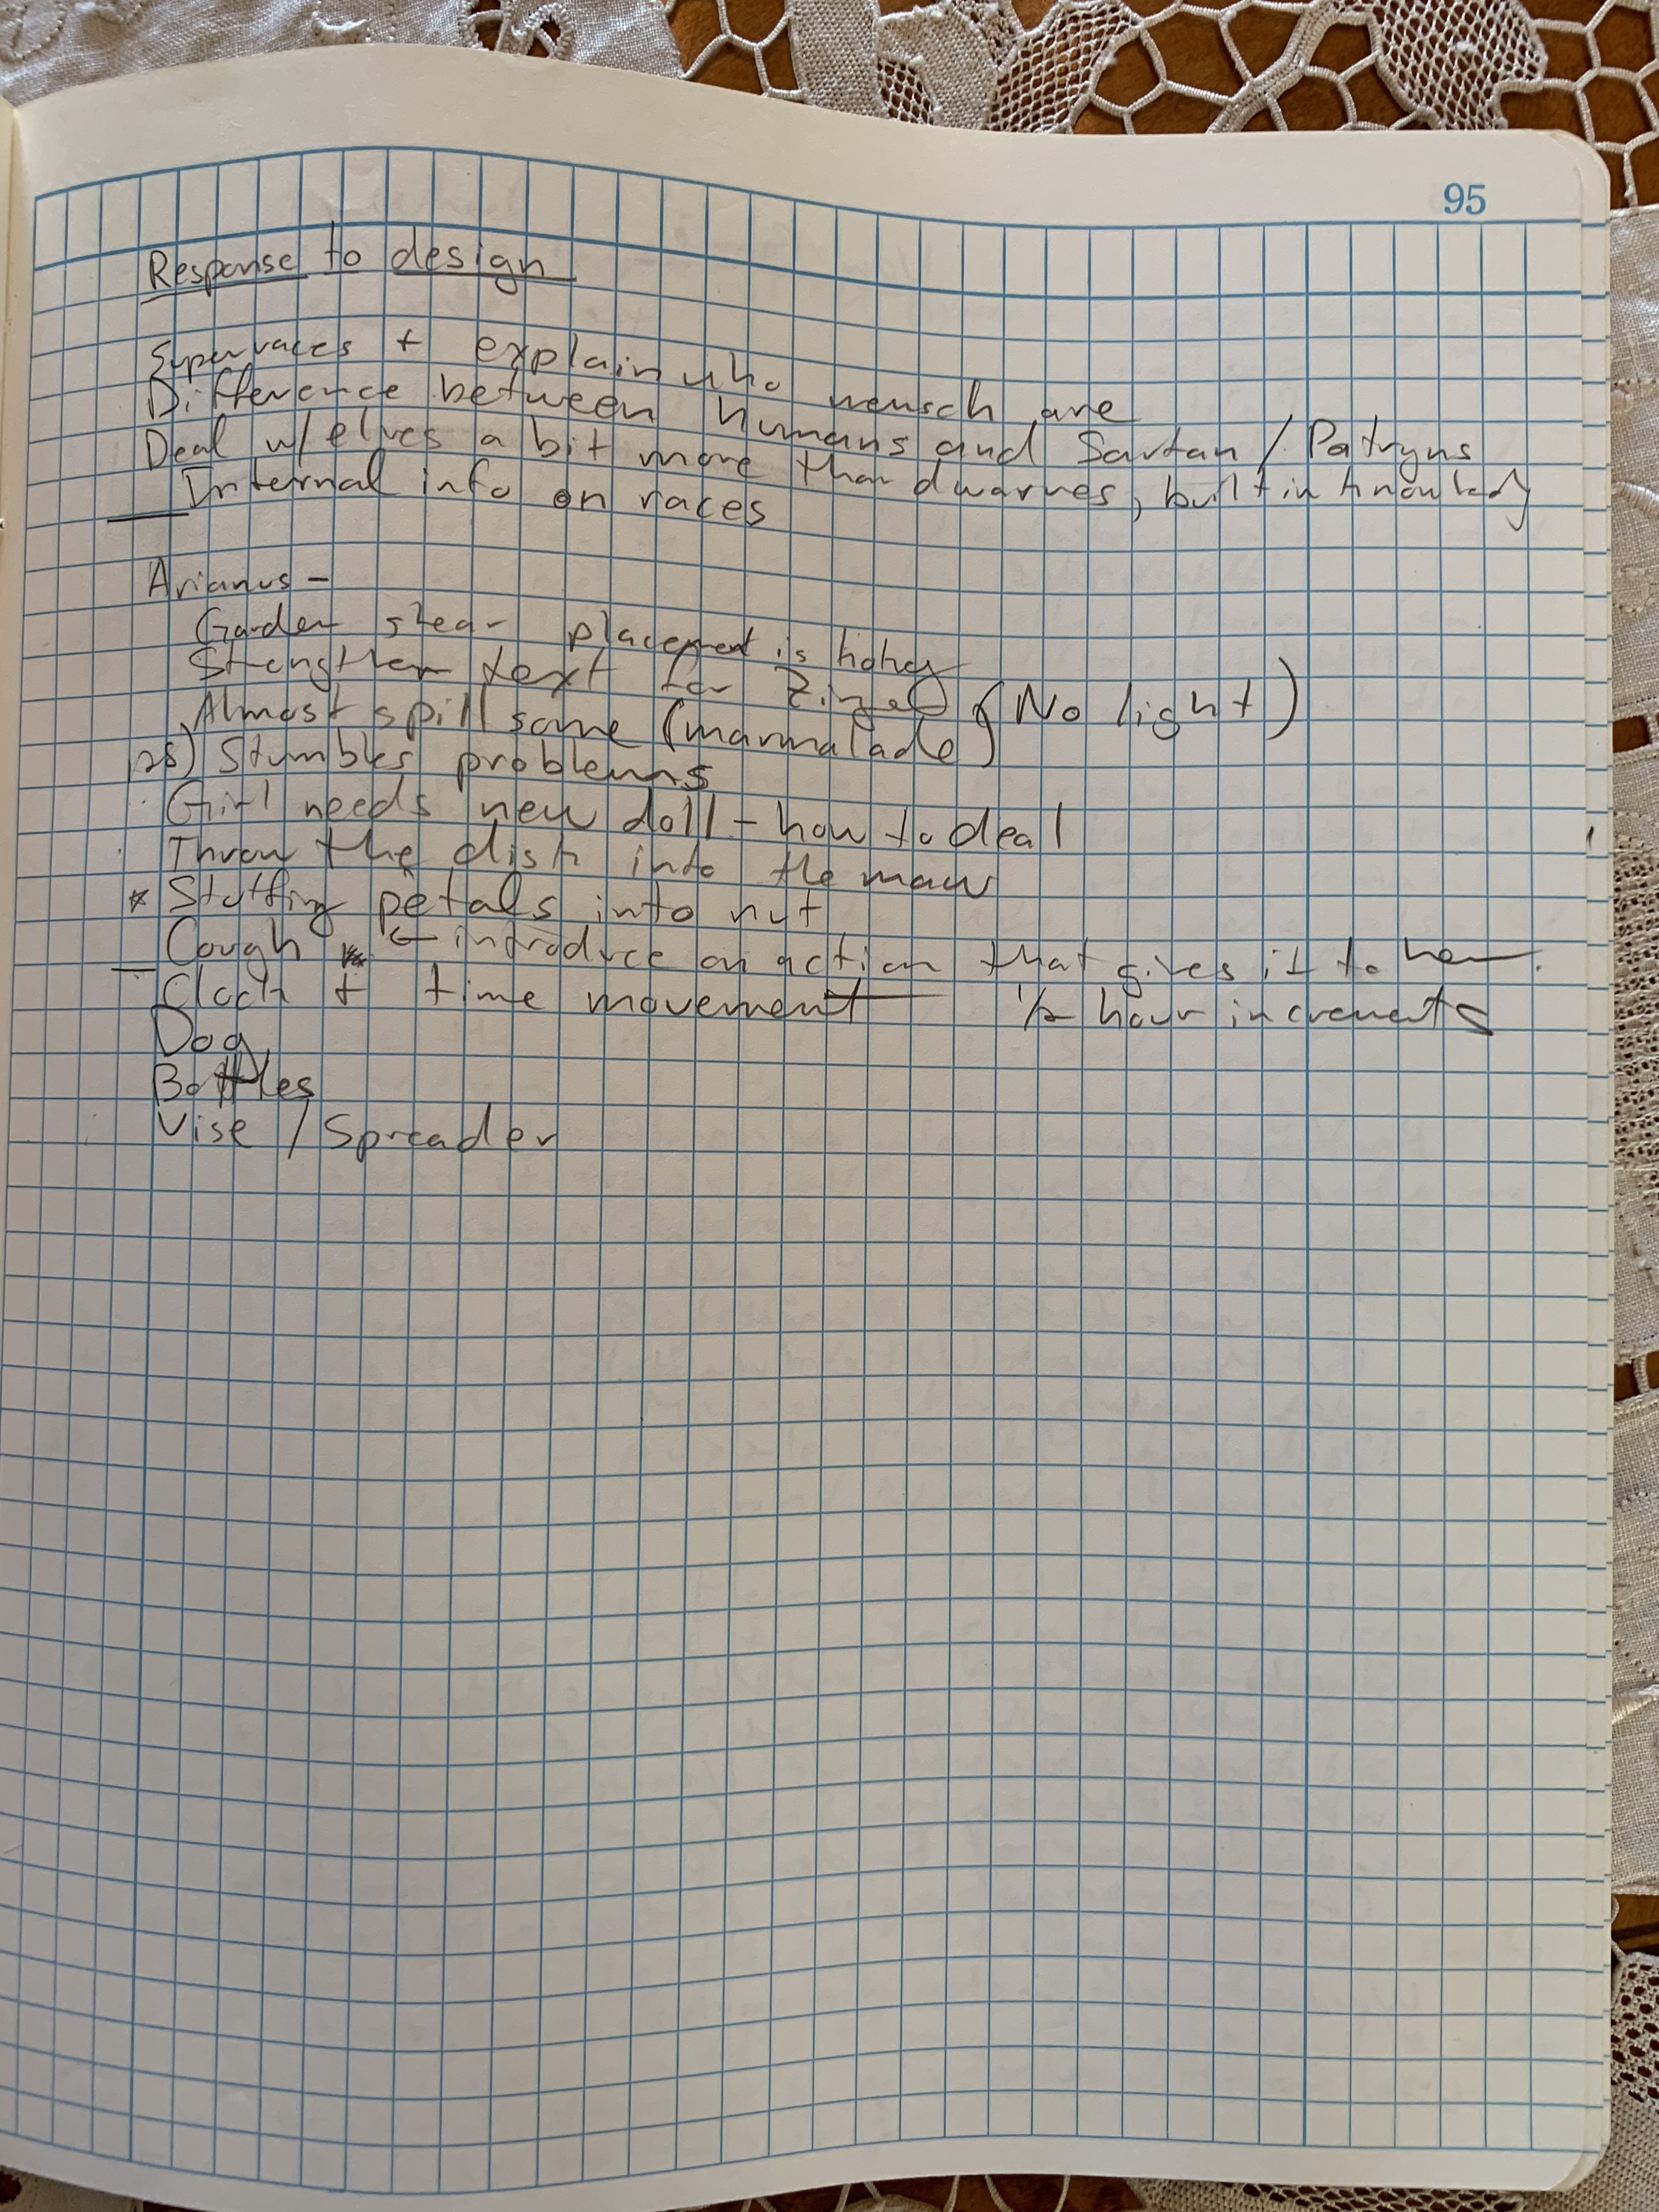 95
Response to design
Superraces + explain who mensch are
Difference between humans and Sartan / Patryns
Deal w/ elves a bit more than dwarves, built in knowledg
Internal info on races
Arianus -
Garden shear placement is hokey
Strengthen text for (No light)
Almost spill some (marmalade)
Stumbles problems
Girl needs new doll - how to deal
Throw the dish into the maw
* Stuffing petals into nut
Cough ← introduce an action that gives it to her.
Clock + time movement 1/2 hour increments
Dog
Bottles
Vise / Spreader